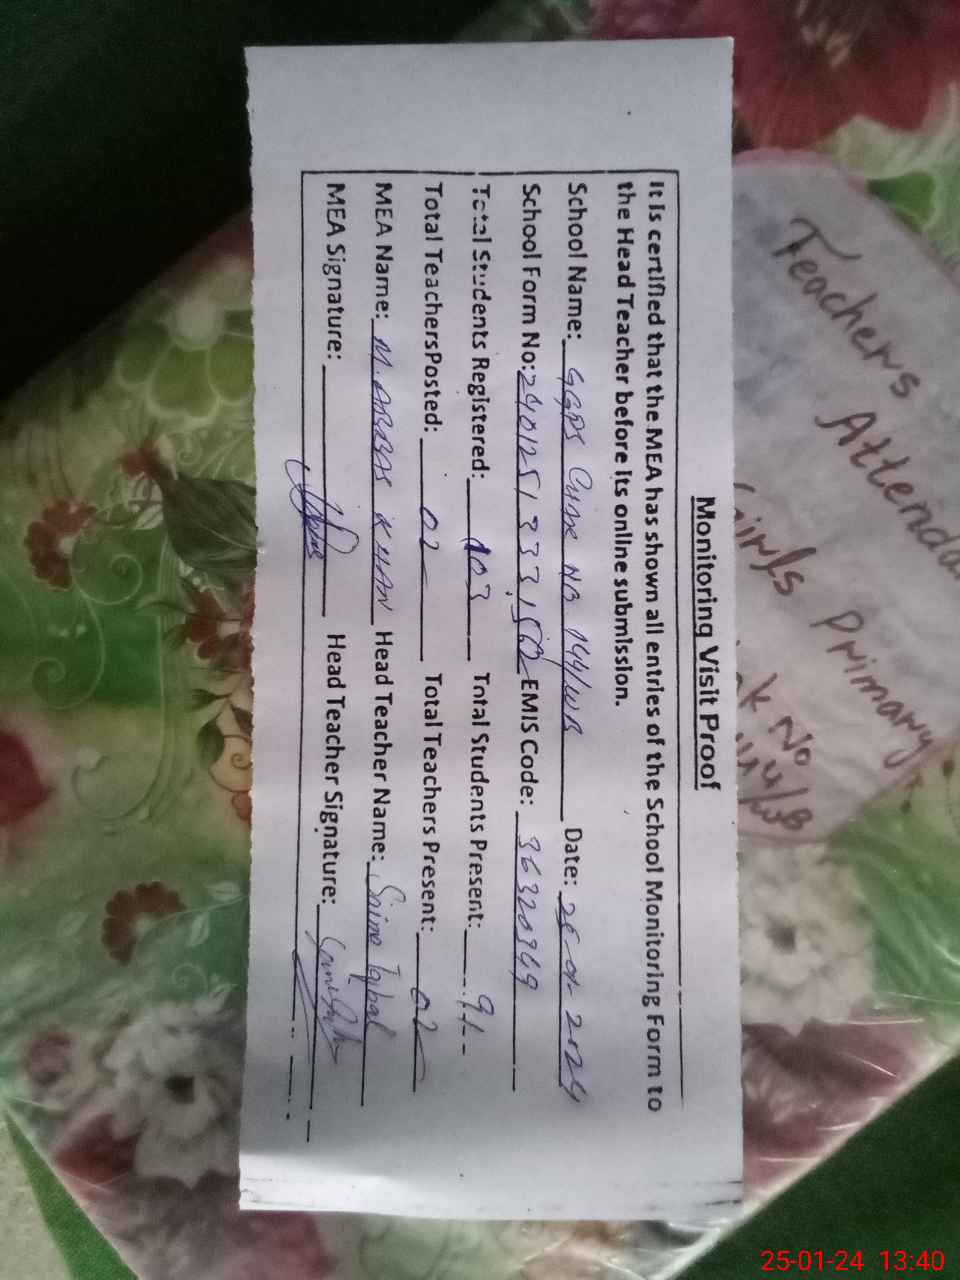 Monitoring Visit Proof
It is certified that the MEA has shown all entries of the School Monitoring Form to
the Head Teacher before its online submission.
School Name: GGPS NB 144/WB Date: 25-01-2024
School Form No: EMIS Code: 36320349
Total Students Registered: 103 Total Students Present: 91
Total TeachersPosted: 02 Total Teachers Present: 02
MEA Name: M. ABBAS KHAN Head Teacher Name: Iqbal
MEA Signature: Head Teacher Signature:
Teachers Attenda
Girls Primary
k No
25-01-24 13:40